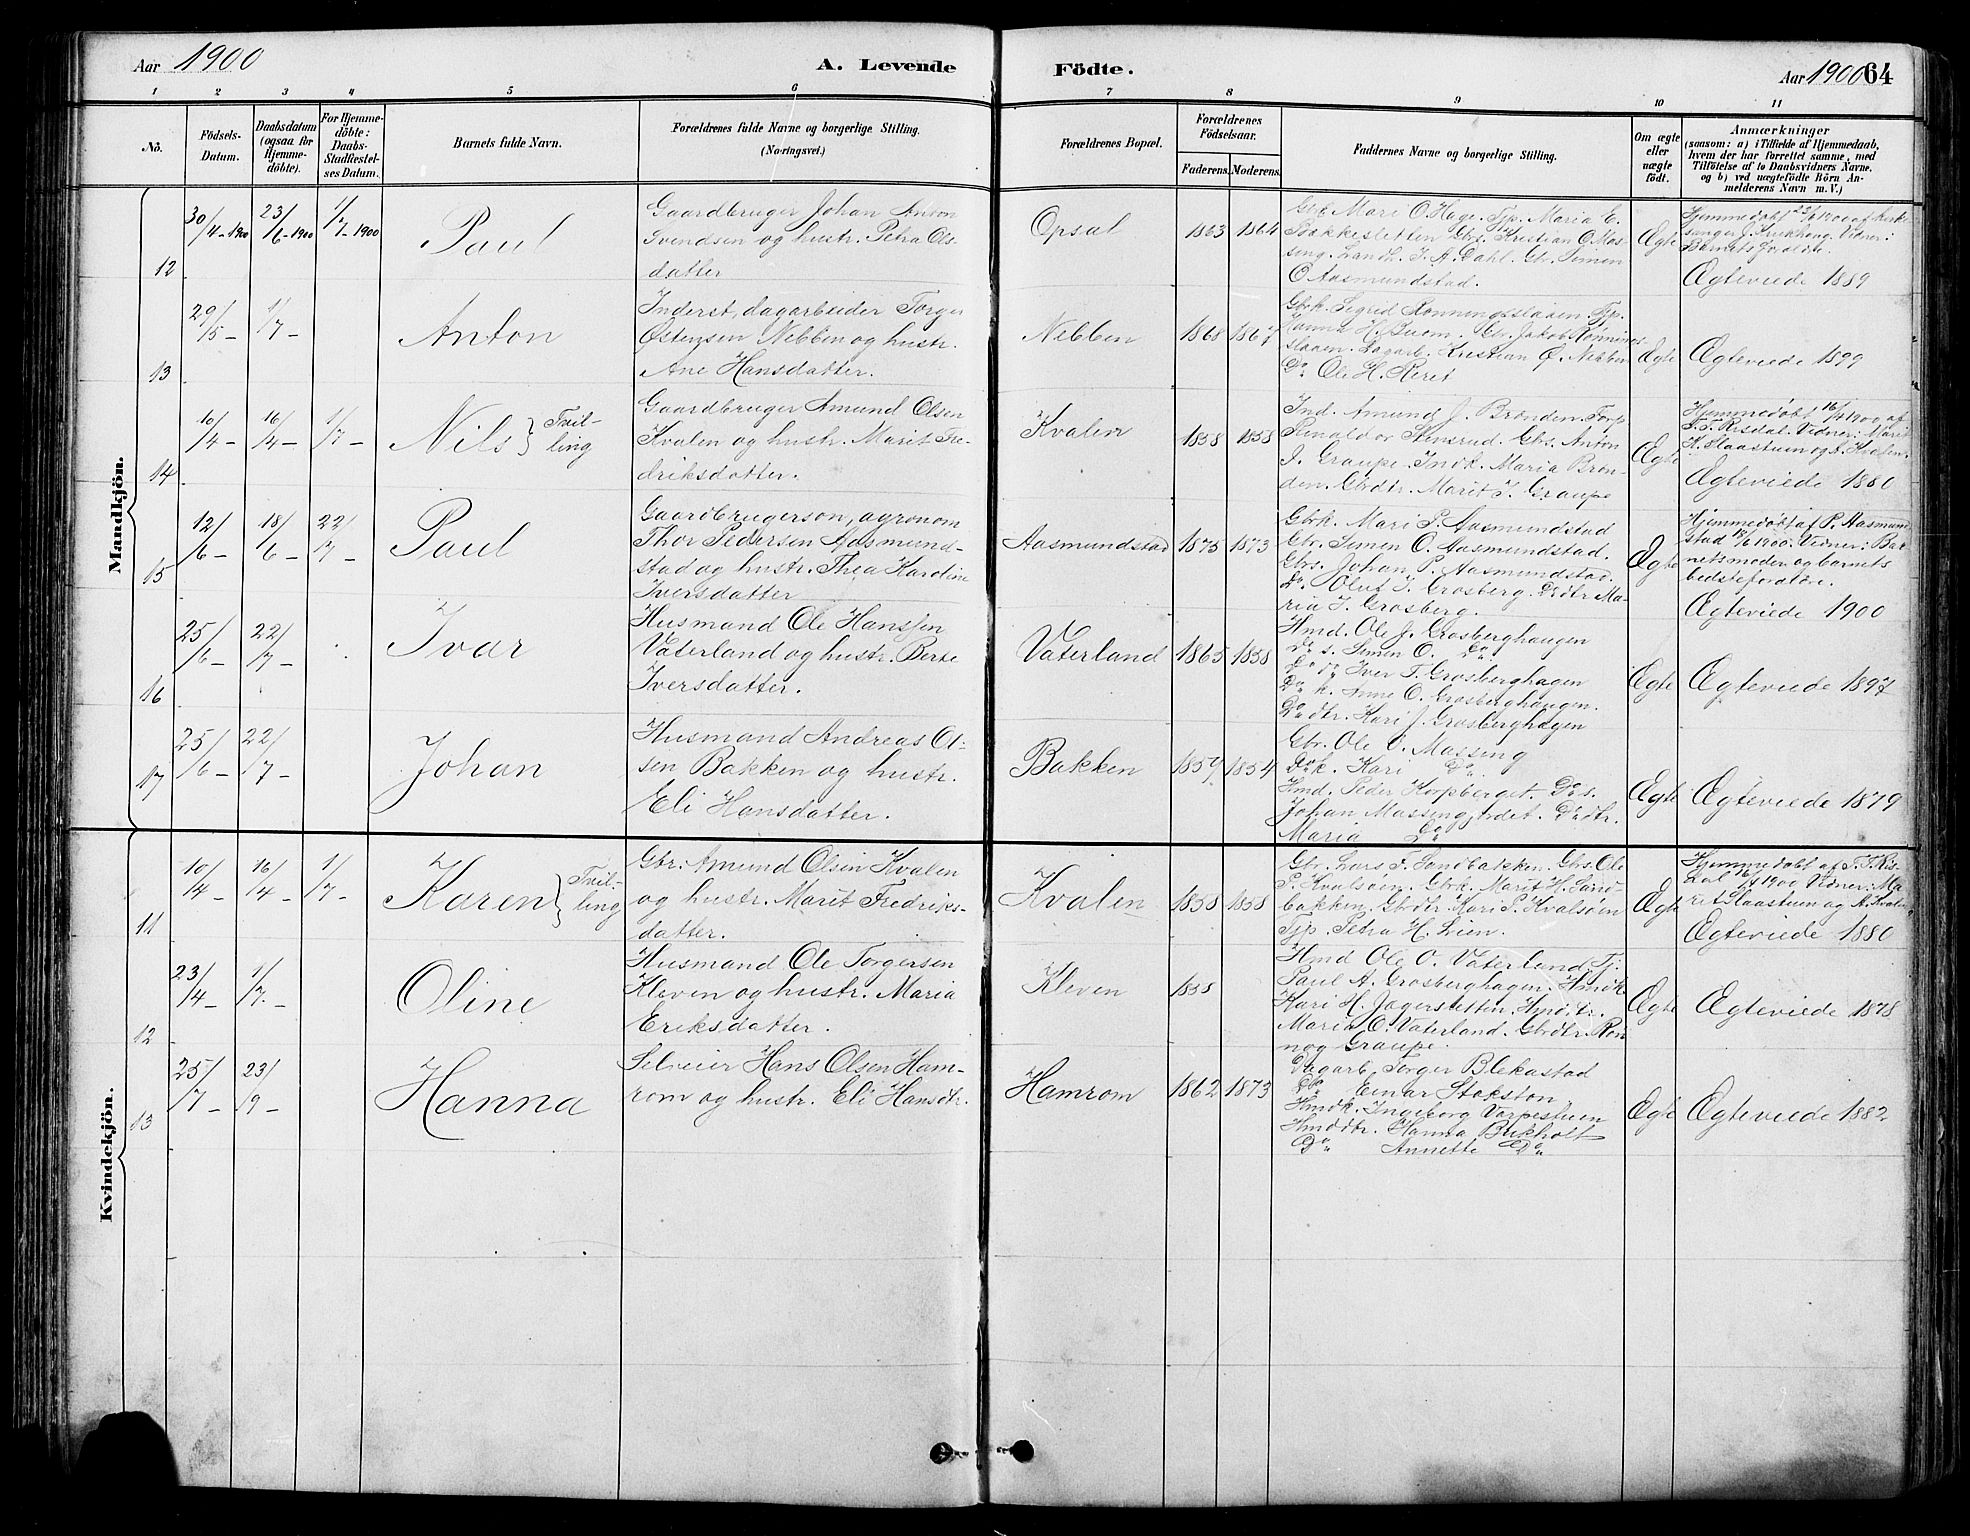 Aar 1900
A. Levende
Födte.
Aar 1900 64
1 2 3 4 5 6 7 8 9 10 11
No.
Födsels-
Datum.
Daabsdatum
(ogsaa for
Hjemme-
döbte).
For Hjemme-
döbte:
Daabs-
Stadfæstel-
ses Datum.
Barnets fulde Navn.
Forældrenes fulde Navne og borgerlige Stilling.
(Næringsvei.)
Forældrenes Bopæl.
Forældrenes
Födselsaar.
Faderens. Moderens.
Faddernes Navne og borgerlige Stilling.
Om ægte
eller
uægte
födt.
Anmærkninger
(saasom: a) i Tilfælde af Hjemmedaab,
hvem der har forrettet samme, med
Tilföielse af to Daabsvidners Navne,
og b) ved uægtefödte Börn An-
melderens Navn m. V.)
Mandkjön.
12
30/4-1900
23/6-1900
1/7-1900
Paul
Gaardbruger Johan Anton
Svendsen og hustr. Petra Ols-
datter
Opsal
1863 1864
Gbk Mari O. Hage. Tjp. Maria E.
Bakkesletten Gbs. Kristian O. Mos-
sing. Landh. J. A. Dahl. Gbr. Simen
O Aasmundstad.
Ægte
Hjemmedøbt 23/6 1900 af kirke
sanger J. Krukhoug. Vidner:
Barnets forældre.
Ægteviede 1889
13
29/5-
1/7-
Anton
Inderst, dagarbeider Torger
Østensen Nebben og hustr.
Ane Hansdatter.
Nebben
1868 1867
Gbrk. Sigrid Rønningslaaen Tjp.
Hanna H. Buom. Gs. Jakob Rønnings
slaaen. Dagarb. Kristian Ø. Nebben
Do Ole H. Reret
Ægte
Ægteviede 1899
14
10/4-
16/4-
1/7-
Nils } Tvil-
ling
Gaardbruger Amund Olsen
Kvalen og hustr. Marit Fre-
driksdatter.
Kvalen
1858 1858
Ind. Amund J. Brønden. Forp
Renaldor Stensrud. Gbs. Anton
J. Graupe. Indk. Maria Brøn-
den. Gbrdtr. Marit J. Graupe
Ægte
Hjemmedøbt 16/4 1900 af
T. T. Risdal. Vidner: Marit
H. Slaastuen og A. Kvalen.
Ægteviede 1880
15
12/6-
18/6-
22/7-
Paul
Gaardbrugerson, agronom
Thor Pedersen Aasmund-
stad og hustr. Thea Karoline
Iversdatter
Aasmundstad
1875 1873
Gbrk. Mari P. Aasmundstad
Gbr. Simen O. Aasmundstad.
Gbrs. Johan P. Aasmundstad.
Do Oluf I. Grosberg. Do dtr Ma-
ria I. Grosberg.
Ægte
Hjemmedøbt af P. Aasmund
stad 18/6 1900. Vidner: Bar
nets moder og barnets
bedsteforældre.
Ægteviede 1900
16
25/6-
22/7-
Ivar
Husmand Ole Hanssen
Vaterland og hustr. Berte
Iversdatter.
Vaterland
1865 1858
Hmd. Ole J. Grosberghaugen
Do s. Simen O. Do
Do do Iver T. Grosberghagen
Do k. Anne O. Grosberghaugen.
Do dtr. Kari J. Grosberghagen
Ægte
Ægteviede 1897
17
25/6-
22/7-
Johan
Husmand Andreas Ol-
sen Bakken og hustr.
Eli Hansdatter.
Bakken
1857 1854
Gbr. Ole O. Massing
Do k. Kari Do
Hmd. Peder Korpberget. Do s.
Johan Massing, rdet. Do dtr.
Maria Do
Ægte
Ægteviede 1879
Kvindekjön.
11
10/4-
16/4-
1/7-
Karen } Tvil-
ling
Gbr. Amund Olsen Kvalen
og hustr. Marit Fredriks-
datter.
Kvalen
1858 1858
Gbr. Lars F. Sandbakken. Gbs. Ole
P. Kvalsøen. Gbrk. Marit H. Sand-
bakken. Gbrdtr. Kari P. Kvalsøen
Tjp. Petra H. Lien.
Ægte
Hjemmedøbt af T. T. Ris-
dal 16/4 1900. Vidner: Ma-
rit Slaastuen og A. Kvalen
Ægteviede 1880
12
23/4-
1/7-
Oline
Husmand Ole Torgersen
Kleven og hustr. Maria
Eriksdatter.
Kleven
1858
Hmd Ole O. Vaterland Tj.
Paul A. Grosberghagen. Hmdk
Kari H. Jagersletten. Hmdtr.
Maria O. Vaterland. Gbrdtr. Ron
nog Graupe.
Ægte
Ægteviede 1878
13
25/7-
23/9-
Hanna
Selveier Hans Olsen Ham-
rom og hustr. Eli Hansdtr.
Hamrom
1862 1873
Dagarb Torger Blekastad
Do Einar Stokston
Hmdk. Ingeborg Vorpestuen
Hmddtr. Hanna Bukholt
Do Annette Do
Ægte
Ægteviede 1882